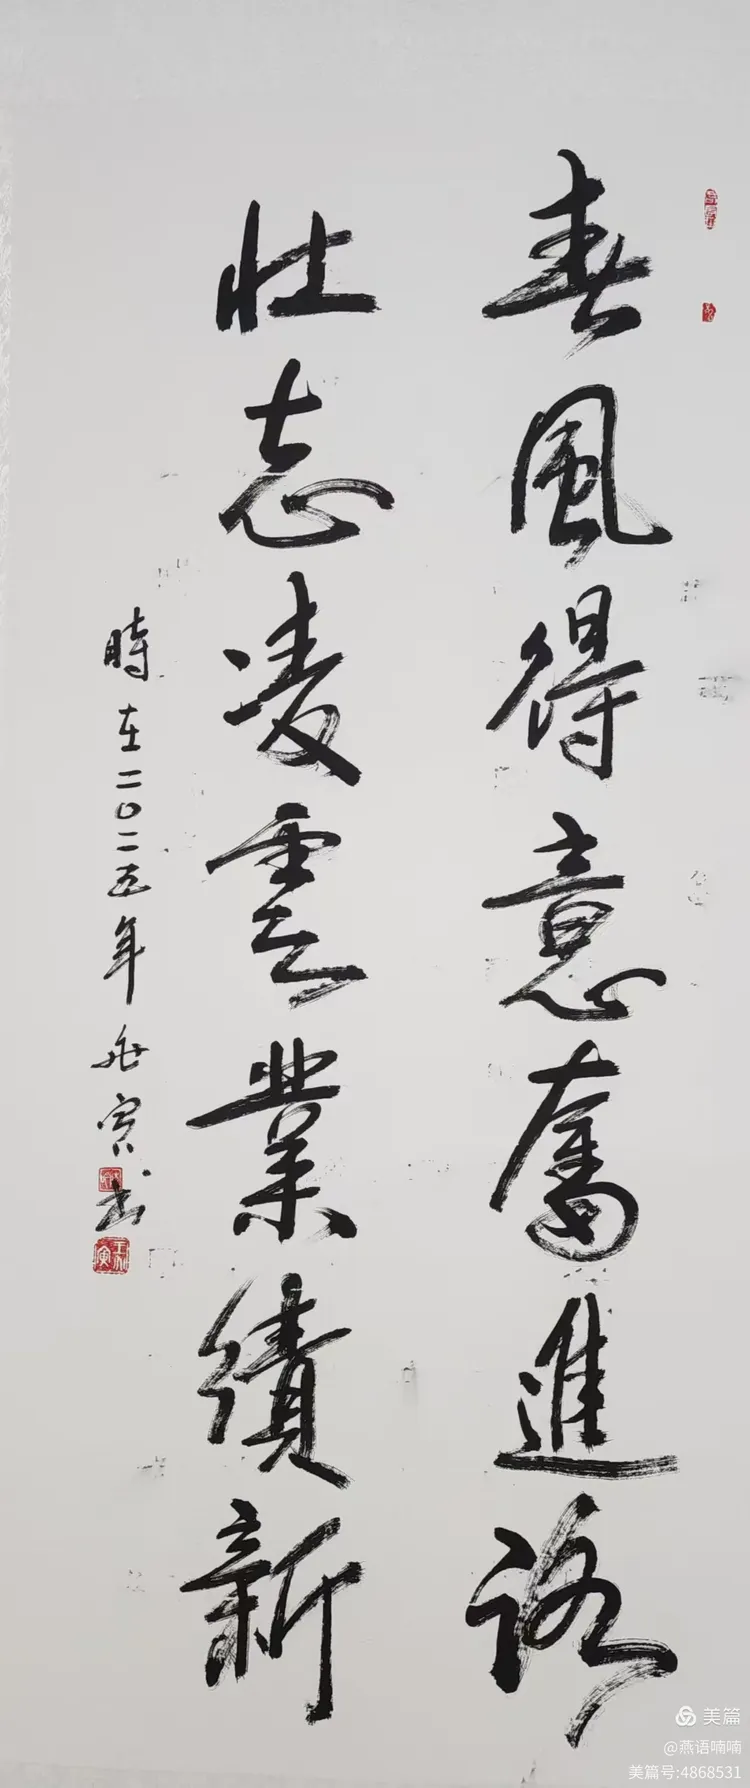 春風得意奮進路
壮志凌雲業績新
時在二〇二五年
書
美篇
@燕语喃喃
美篇号:4868531